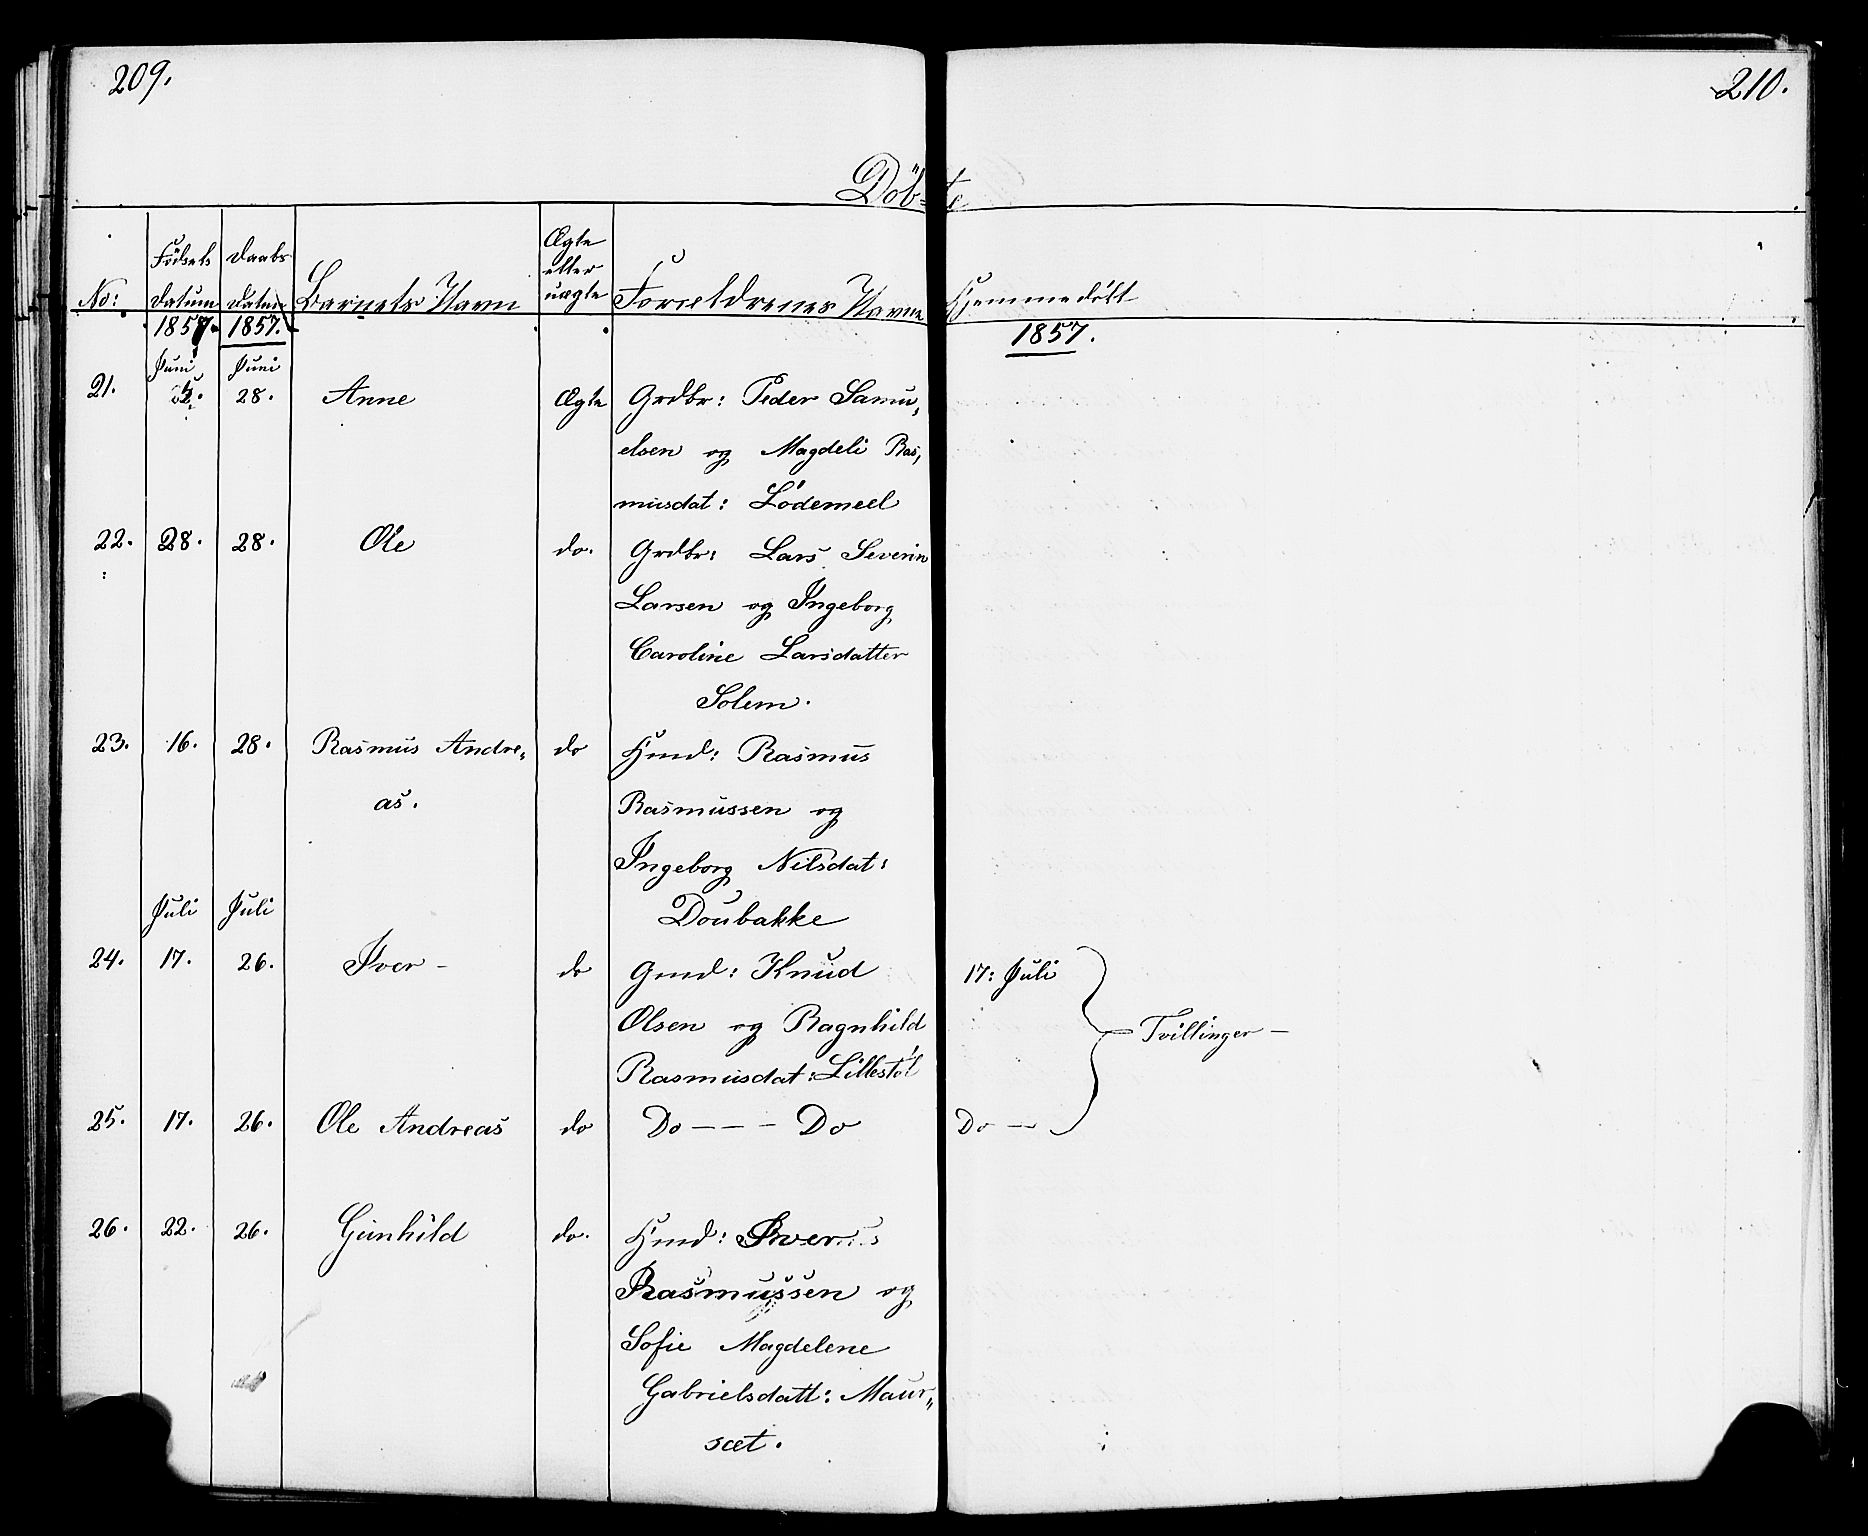 209.
210.
Döbte
No:
Födsels Datum
Daabs Datum
Barnets Navn
Ægte eller uægte
Forældrenes Navne
Hjemmedöbt
1857. 1857.
1857.
Juni Juni
21. 28. Anne Ægte Grdbr: Peder Samu,,
elsen og Magdeli Ras,,
musdat: Lödemeel
22. 28. 28. Ole do. Grdbr: Lars Severin
Larsen og Ingeborg
Caroline Larsdatter
Solem.
23. 16. 28. Rasmus Andre,, do Hmd: Rasmus
as. Rasmussen og
Ingeborg Nilsdat:
Juli Juli Doubakke
24. 17. 26. Iver - do Gmd: Knud 17: Juli
Olsen og Ragnhild Tvillinger -
Rasmusdat: Lillestöl
25. 17. 26. Ole Andreas do Do - - - Do Do - -
26. 22. 26. Gunhild do. Hmd: Iver
Rasmussen og
Sofie Magdelene
Gabrielsdatt: Maur,,
sæt.